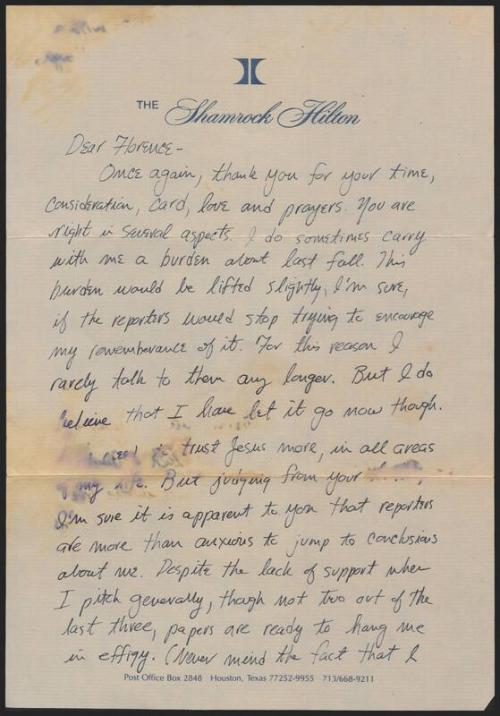 THE Shamrock Hilton
Dear Florence-
Once again, thank you for your time,
consideration, card, love and prayers. You are
right in several aspects. I do sometimes carry
with me a burden about last fall. This
burden would be lifted slightly, I'm sure,
if the reporters would stop trying to encourage
my rememberance of it. For this reason I
rarely talk to them any longer. But I do
believe that I have let it go now though.
trust Jesus more, in all areas
of my life. But judging from your
I'm sure it is apparent to you that reporters
are more than anxious to jump to conclusions
about me. Despite the lack of support when
I pitch generally, though not two out of the
last three, papers are ready to hang me
in effigy. (Never mind the fact that I
Post Office Box 2848 Houston, Texas 77252-9955 713/668-9211